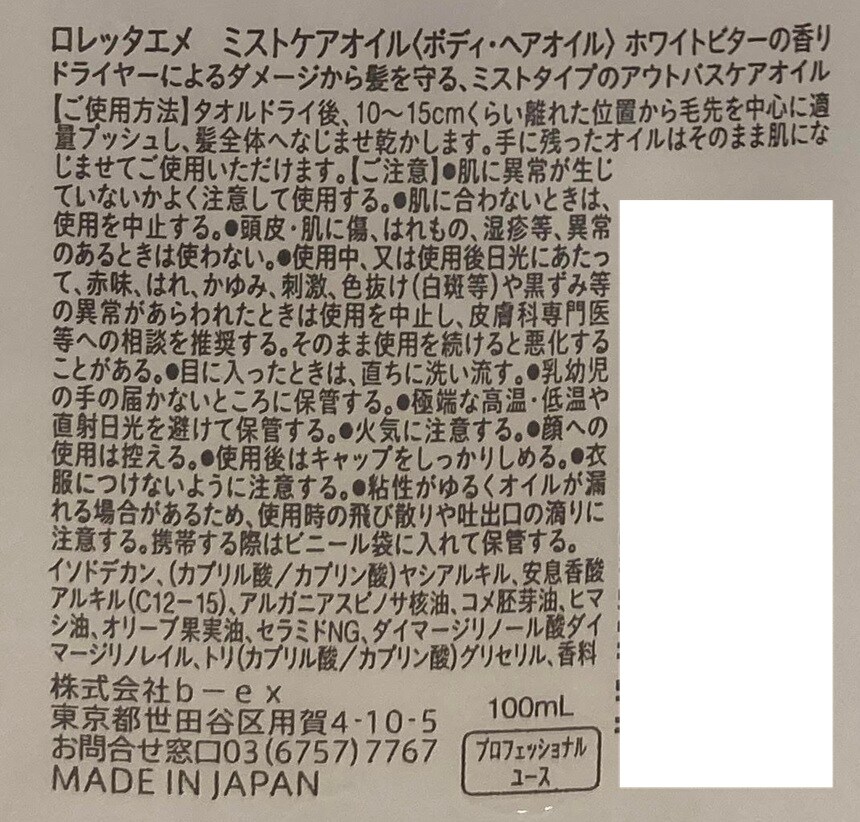 ロレッタエメ　ミストケアオイル〈ボディ・ヘアオイル〉 ホワイトビターの香り
ドライヤーによるダメージから髪を守る、ミストタイプのアウトバスケアオイル
【ご使用方法】タオルドライ後、10〜15cmくらい離れた位置から毛先を中心に適
量プッシュし、髪全体へなじませ乾かします。手に残ったオイルはそのまま肌にな
じませてご使用いただけます。【ご注意】●肌に異常が生じ
ていないかよく注意して使用する。●肌に合わないときは、
使用を中止する。●頭皮・肌に傷、はれもの、湿疹等、異常
のあるときは使わない。●使用中、又は使用後日光にあたっ
て、赤味、はれ、かゆみ、刺激、色抜け(白斑等)や黒ずみ等
の異常があらわれたときは使用を中止し、皮膚科専門医
等への相談を推奨する。そのまま使用を続けると悪化する
ことがある。●目に入ったときは、直ちに洗い流す。●乳幼児
の手の届かないところに保管する。●極端な高温・低温や
直射日光を避けて保管する。●火気に注意する。●顔への
使用は控える。●使用後はキャップをしっかりしめる。●衣
服につけないように注意する。●粘性がゆるくオイルが漏
れる場合があるため、使用時の飛び散りや吐出口の滴りに
注意する。携帯する際はビニール袋に入れて保管する。
イソドデカン、(カプリル酸／カプリン酸)ヤシアルキル、安息香酸
アルキル(C12-15)、アルガニアスピノサ核油、コメ胚芽油、ヒマ
シ油、オリーブ果実油、セラミドNG、ダイマージリノール酸ダイ
マージリノレイル、トリ(カプリル酸／カプリン酸)グリセリル、香料
株式会社ｂ－ｅｘ
東京都世田谷区用賀4-10-5
お問合せ窓口03(6757)7767
MADE IN JAPAN
100mL
プロフェッショナル
ユース